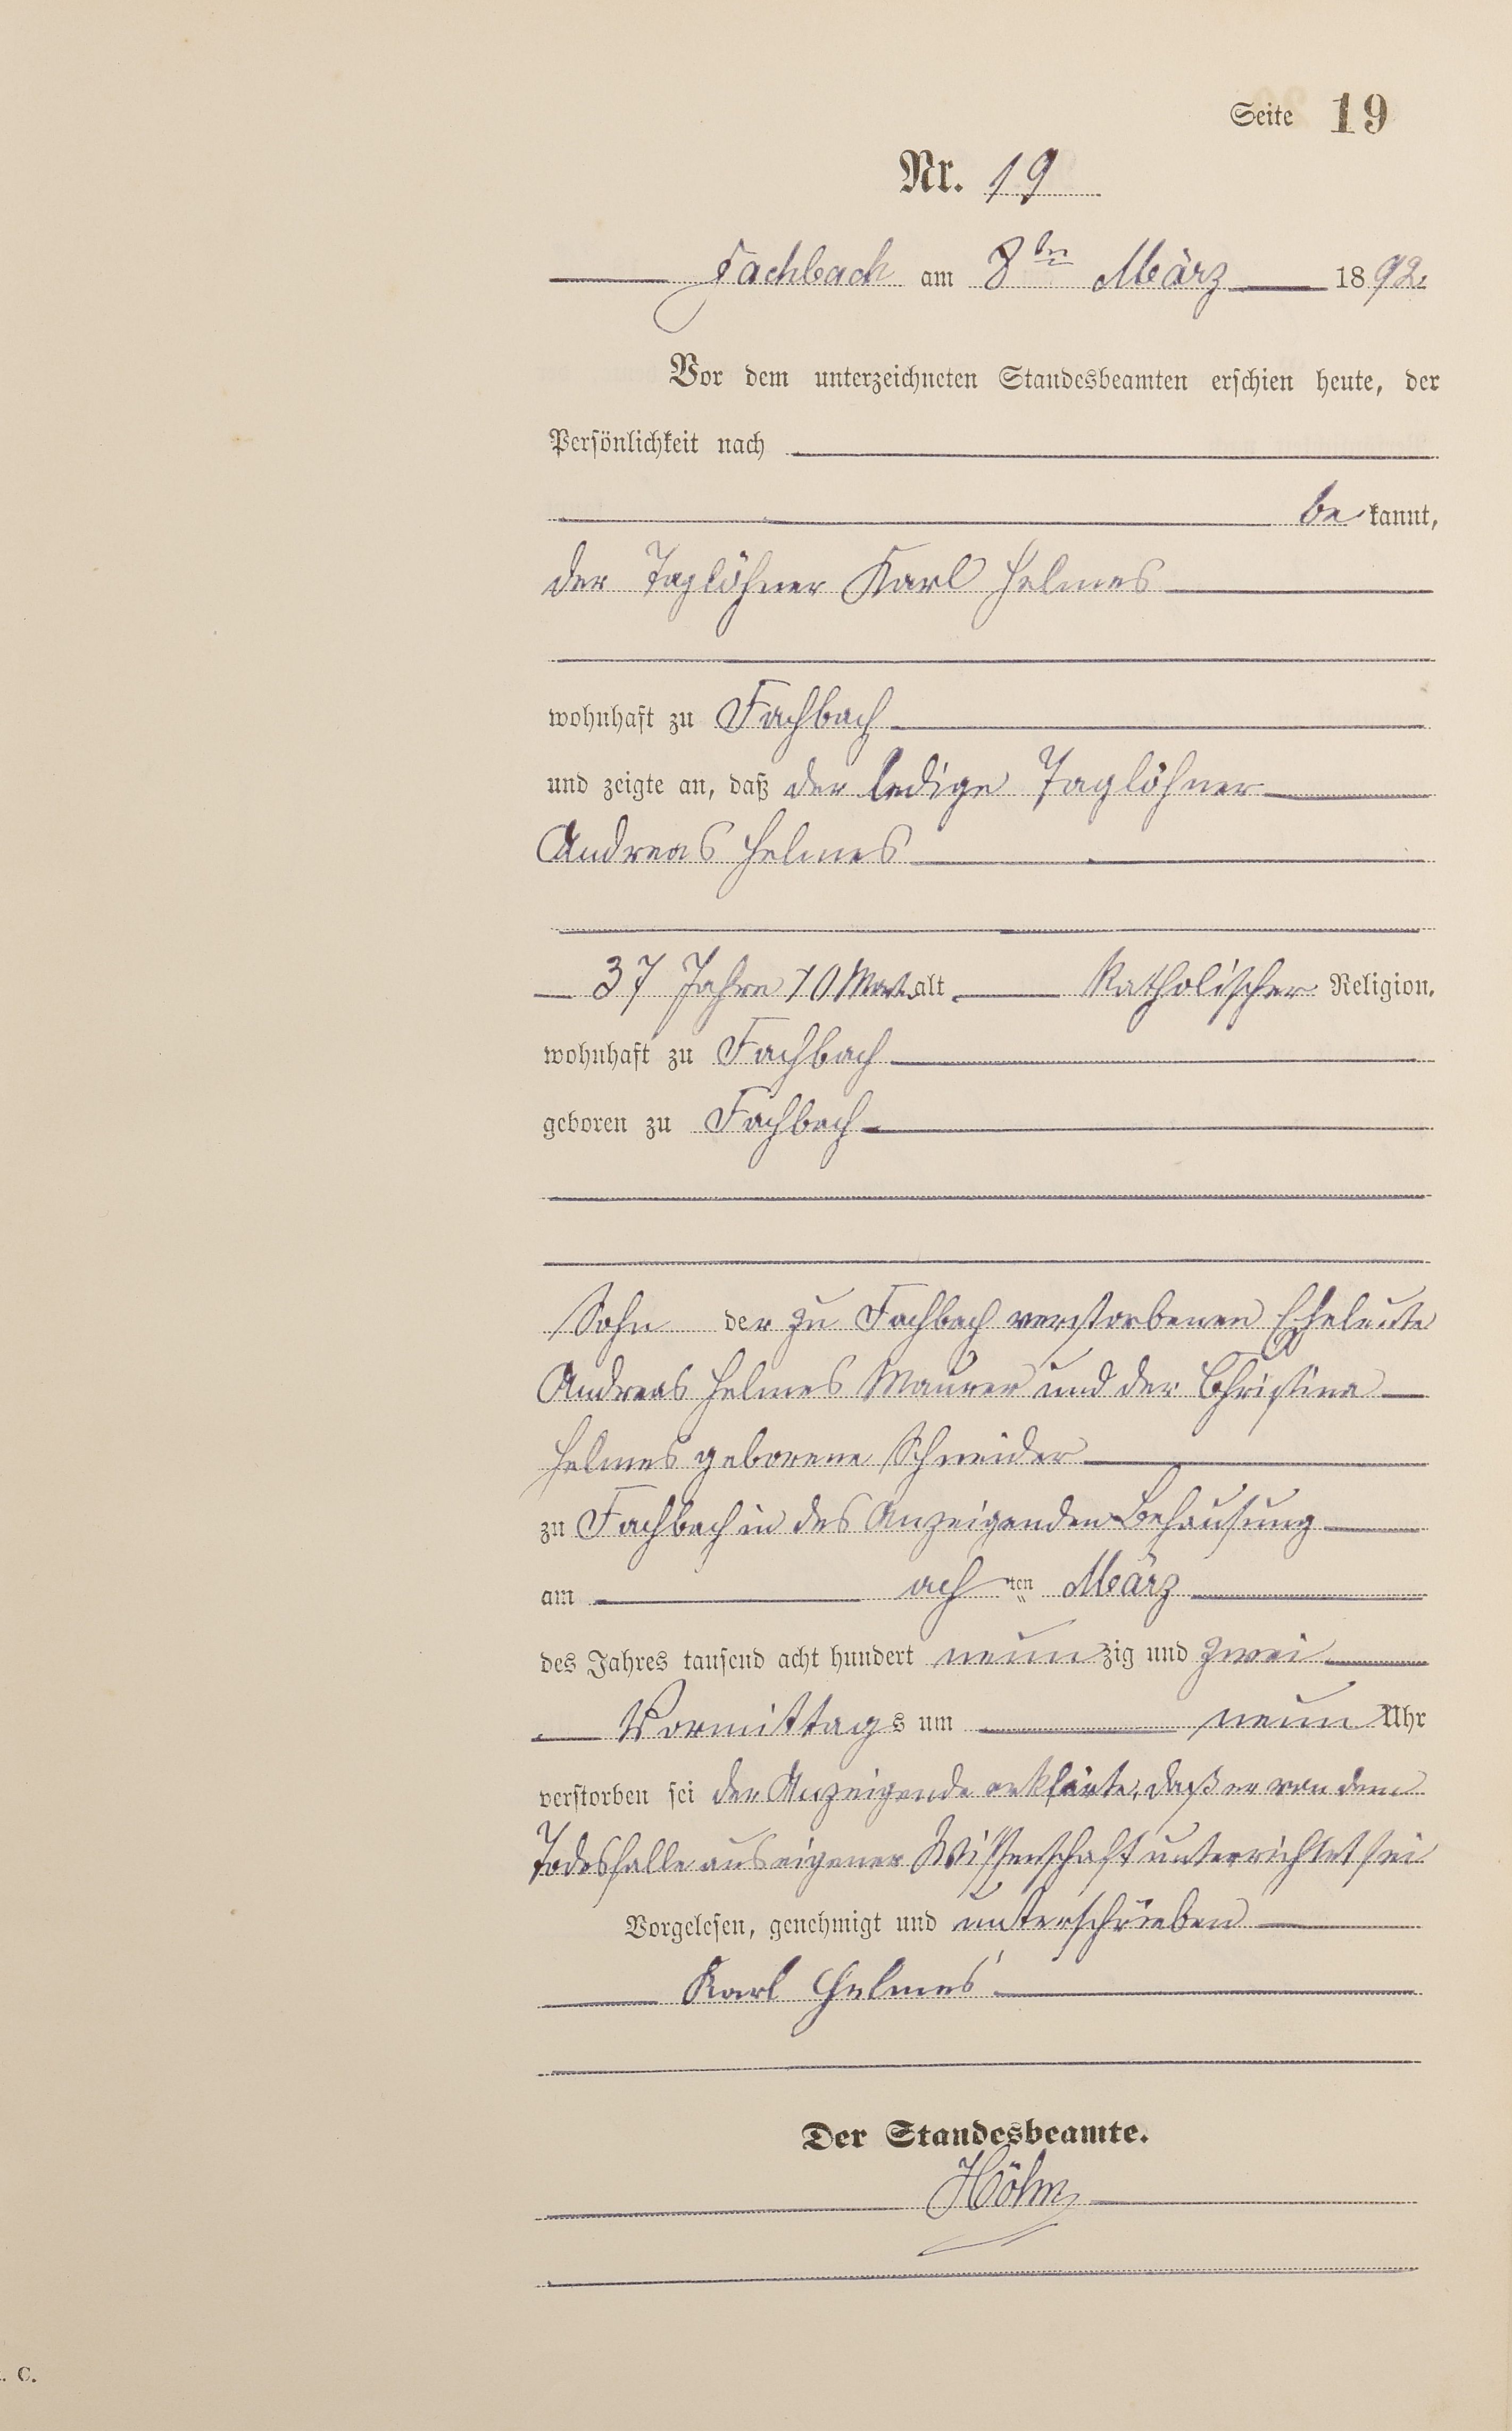 Seite 19
Nr. 19
Fachbach am 8ten März 1892.
Vor dem unterzeichneten Standesbeamten erschien heute, der
Persönlichkeit nach
bekannt,
der Taglöhner Karl Helmes
wohnhaft zu Fachbach
und zeigte an, daß der ledige Taglöhner
Andreas Helmes
37 Jahre 10 Mont. alt katholischer Religion,
wohnhaft zu Fachbach
geboren zu Fachbach
Sohn der zu Fachbach verstorbenen Eheleute
Andreas Helmes Maurer und der Christina
Helmes geborene Schneider
zu Fachbach in des Anzeigenden Behausung
am achten März
des Jahres tausend acht hundert neunzig und zwei
Vormittags um neun Uhr
verstorben sei der Anzeigende erklärte, daß er von dem
Todesfalle aus eigener Wissenschaft unterrichtet sei
Vorgelesen, genehmigt und unterschrieben
Karl Helmes
Der Standesbeamte.
C.